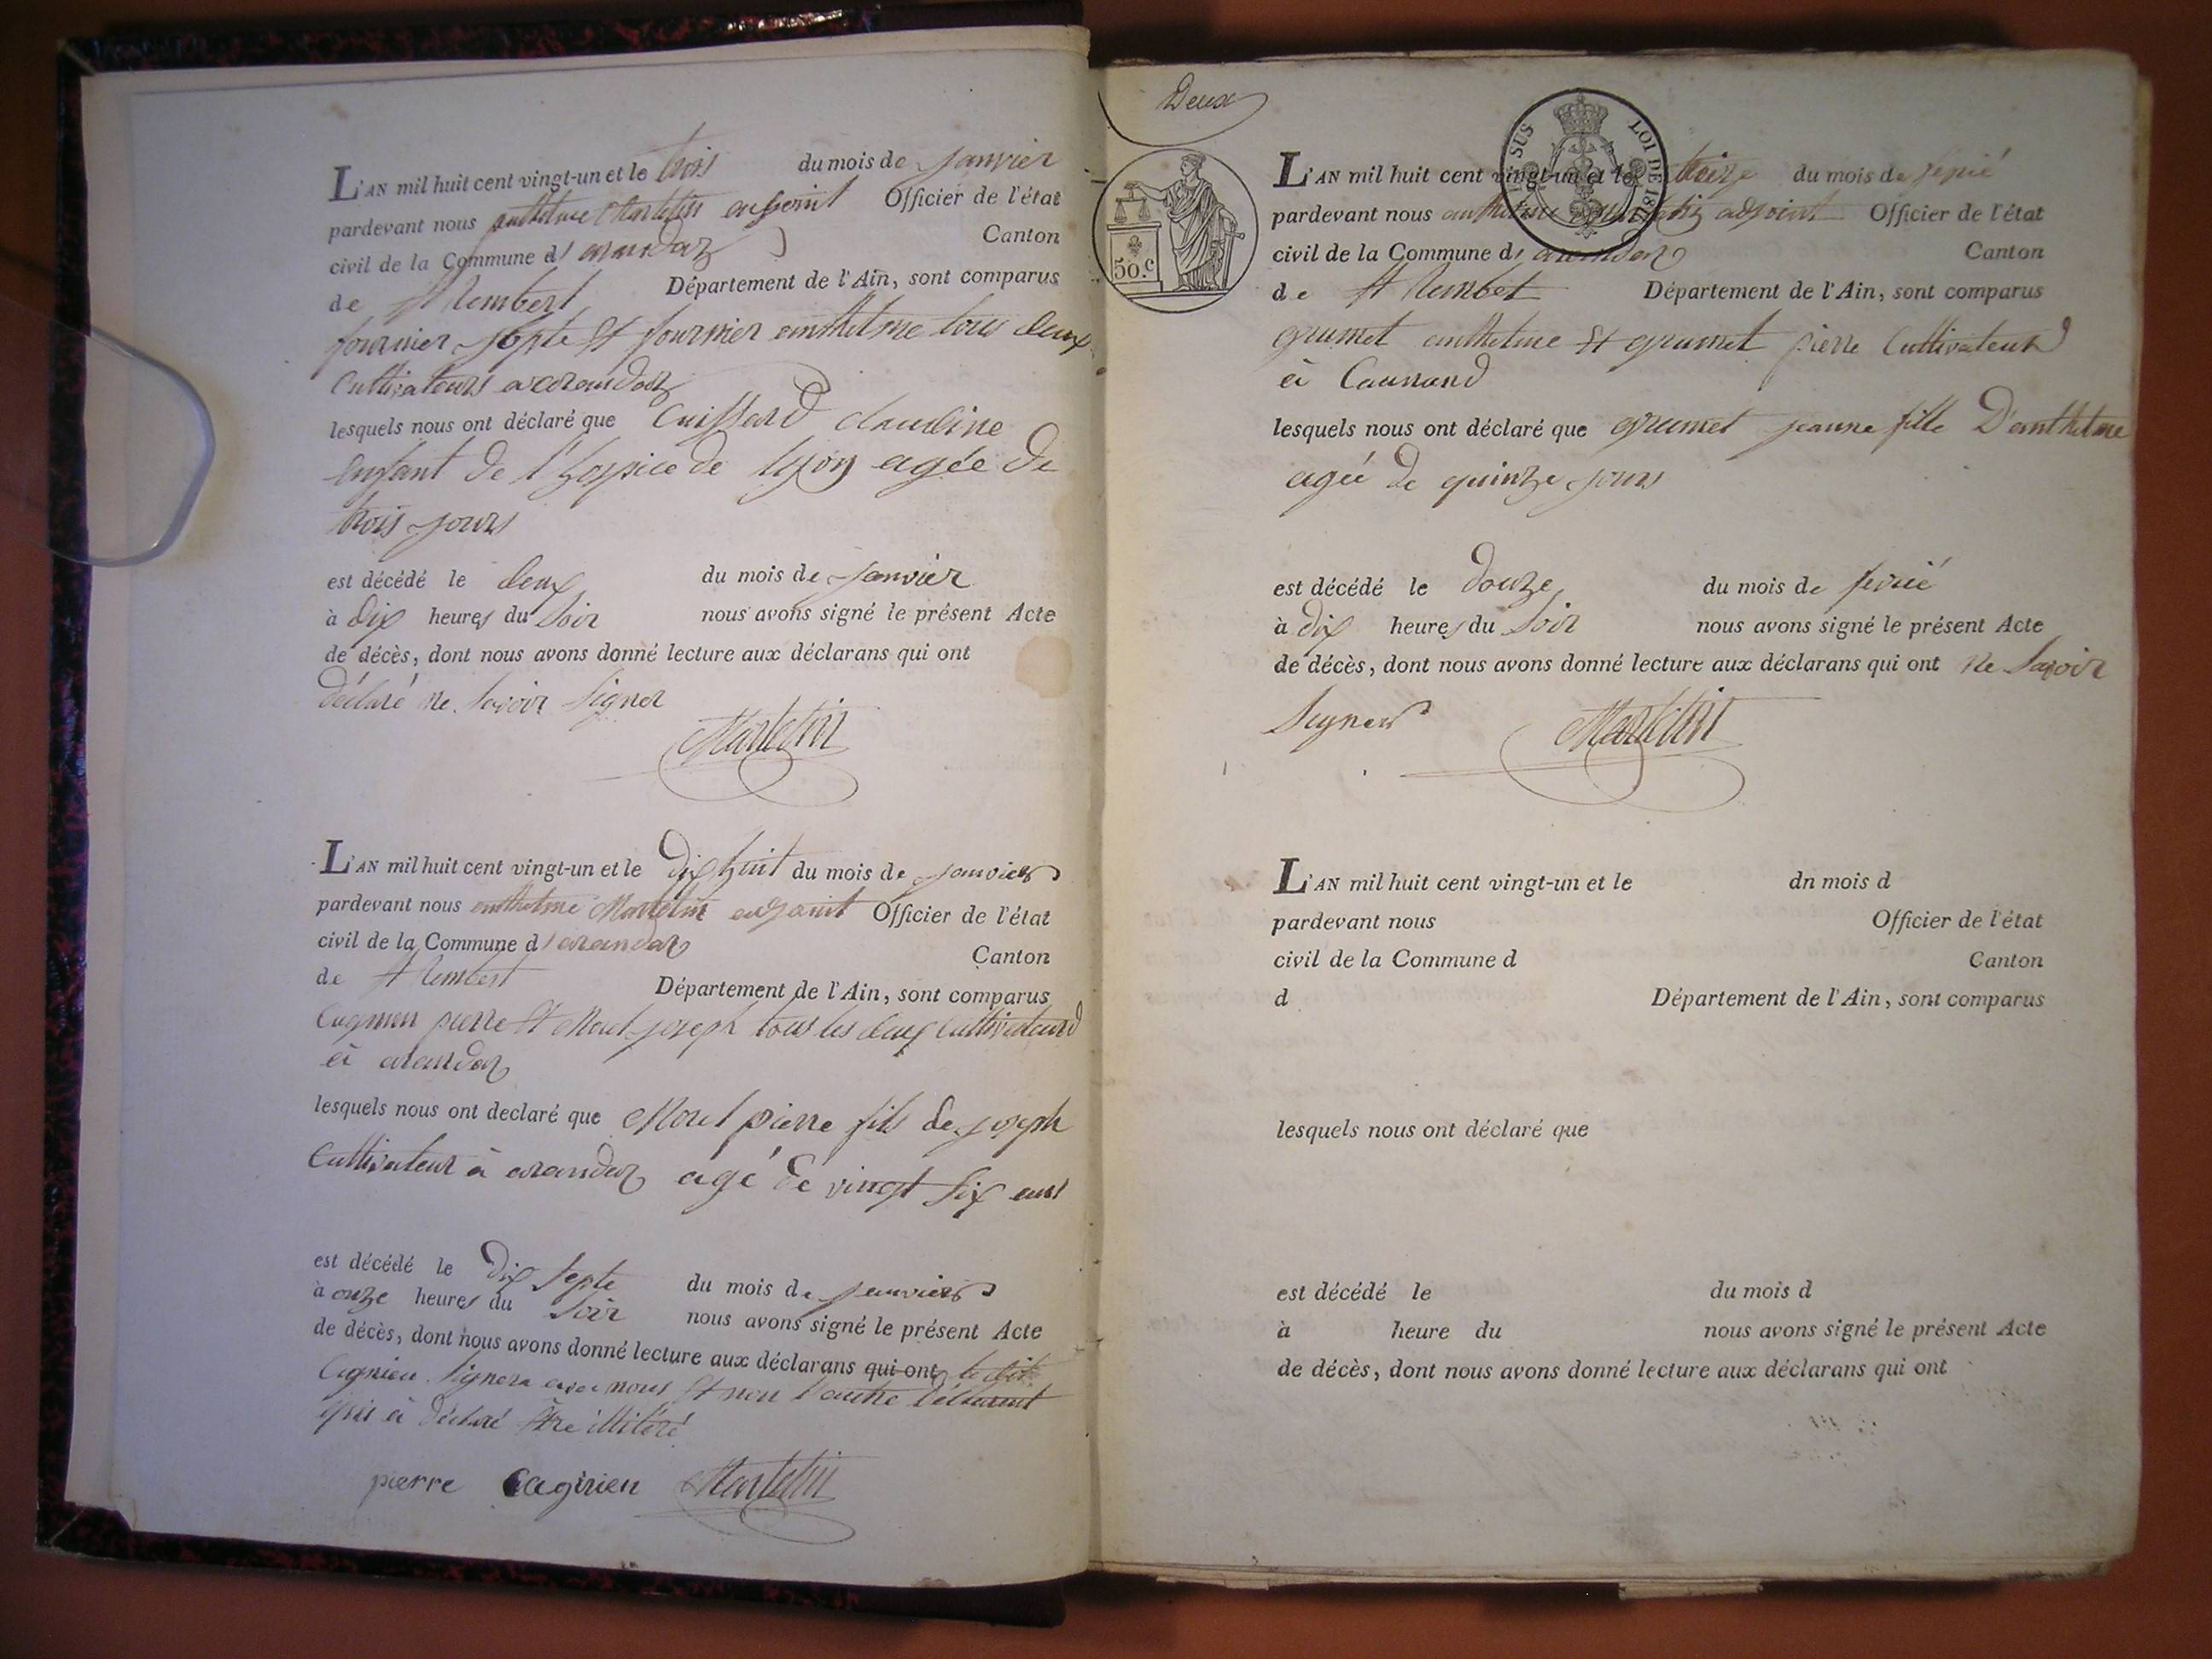 L'AN mil huit cent vingt-un et le trois du mois de janvier
pardevant nous anthelme Martelin adjoint Officier de l'état
civil de la Commune d arandaz Canton
de St Rembert Département de l'Ain, sont comparus
fournier et fournier anthelme tous deux
Cultivateurs a arandaz
lesquels nous ont déclaré que Cuissard claudine
Enfant de l'hospice de lyon agée de
trois jours
est décédé le deux du mois de janvier
à dix heures du soir nous avons signé le présent Acte
de décès, dont nous avons donné lecture aux déclarans qui ont
déclaré ne savoir signer
Martelin
L'AN mil huit cent vingt-un et le dix huit du mois de janvier
pardevant nous anthelme Martelin adjoint Officier de l'état
civil de la Commune d arandaz Canton
de St Rembert Département de l'Ain, sont comparus
Cagnieu pierre et Morel joseph tous les deux Cultivateurs
à arandaz
lesquels nous ont declaré que Morel pierre fils de joseph
Cultivateur à arandaz agé de vingt six ans
est décédé le dix septe du mois de janvier
à onze heures du soir nous avons signé le présent Acte
de décès, dont nous avons donné lecture aux déclarans qui ont le dit
Cagnieu signera avec nous et non l'autre déclarant
qui a déclaré être illitéré
pierre Cagnieu Martelin
Deux
50.c
SUS LOI DE 181
L'AN mil huit cent vingt-un et le treize du mois de févrié
pardevant nous anthelme adjoint Officier de l'état
civil de la Commune d arandaz Canton
de St Rembet Département de l'Ain, sont comparus
grumet anthelme et grumet pierre Cultivateurs
à
lesquels nous ont déclaré que grumet jeanne fille D'anthelme
agée de quinze jours
est décédé le douze du mois de févrié
à dix heures du soir nous avons signé le présent Acte
de décès, dont nous avons donné lecture aux déclarans qui ont ne savoir
signer
Martelin
L'AN mil huit cent vingt-un et le dn mois d
pardevant nous Officier de l'état
civil de la Commune d Canton
d Département de l'Ain, sont comparus
lesquels nous ont déclaré que
est décédé le du mois d
à heure du nous avons signé le présent Acte
de décès, dont nous avons donné lecture aux déclarans qui ont